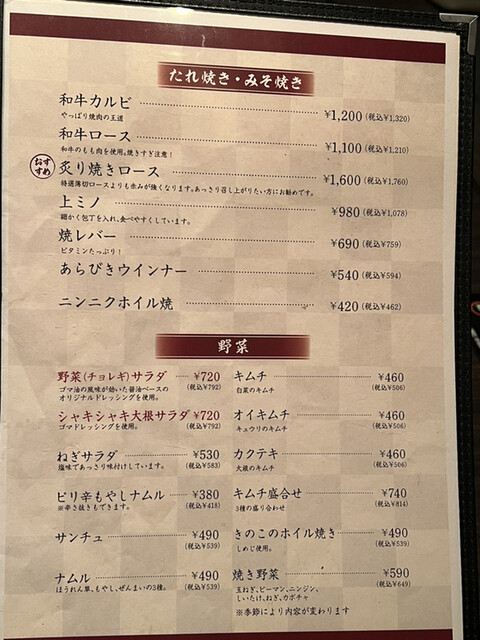 たれ焼き・みそ焼き
和牛カルビ ¥1,200 (税込¥1,320)
やっぱり焼肉の王道
和牛ロース ¥1,100 (税込¥1,210)
和牛のもも肉を使用。焼きすぎ注意!
おすすめ
炙り焼きロース ¥1,600 (税込¥1,760)
特選薄切ロースよりも赤みが強くなります。あっさり召し上がりたい方にお勧めです。
上ミノ ¥980 (税込¥1,078)
細かく包丁を入れ、食べやすくしています。
焼レバー ¥690 (税込¥759)
ビタミンたっぷり!
あらびきウインナー ¥540 (税込¥594)
ニンニクホイル焼 ¥420 (税込¥462)
野菜
野菜(チョレギ)サラダ ¥720
(税込¥792)
ゴマ油の風味が効いた醤油ベースの
オリジナルドレッシングを使用。
シャキシャキ大根サラダ ¥720
(税込¥792)
ゴマドレッシングを使用。
ねぎサラダ ¥530
(税込¥583)
塩味であっさり味付けしています。
ピリ辛もやしナムル ¥380
(税込¥418)
※辛さ抜きもできます。
サンチュ ¥490
(税込¥539)
ナムル ¥490
(税込¥539)
ほうれん草、もやし、ぜんまいの3種。
キムチ ¥460
(税込¥506)
白菜のキムチ
オイキムチ ¥460
(税込¥506)
キュウリのキムチ
カクテキ ¥460
(税込¥506)
大根のキムチ
キムチ盛合せ ¥740
(税込¥814)
3種の盛り合わせ
きのこのホイル焼き ¥490
(税込¥539)
しめじ使用。
焼き野菜 ¥590
(税込¥649)
玉ねぎ、ピーマン、ニンジン、
しいたけ、ねぎ、カボチャ
※季節により内容が変わります